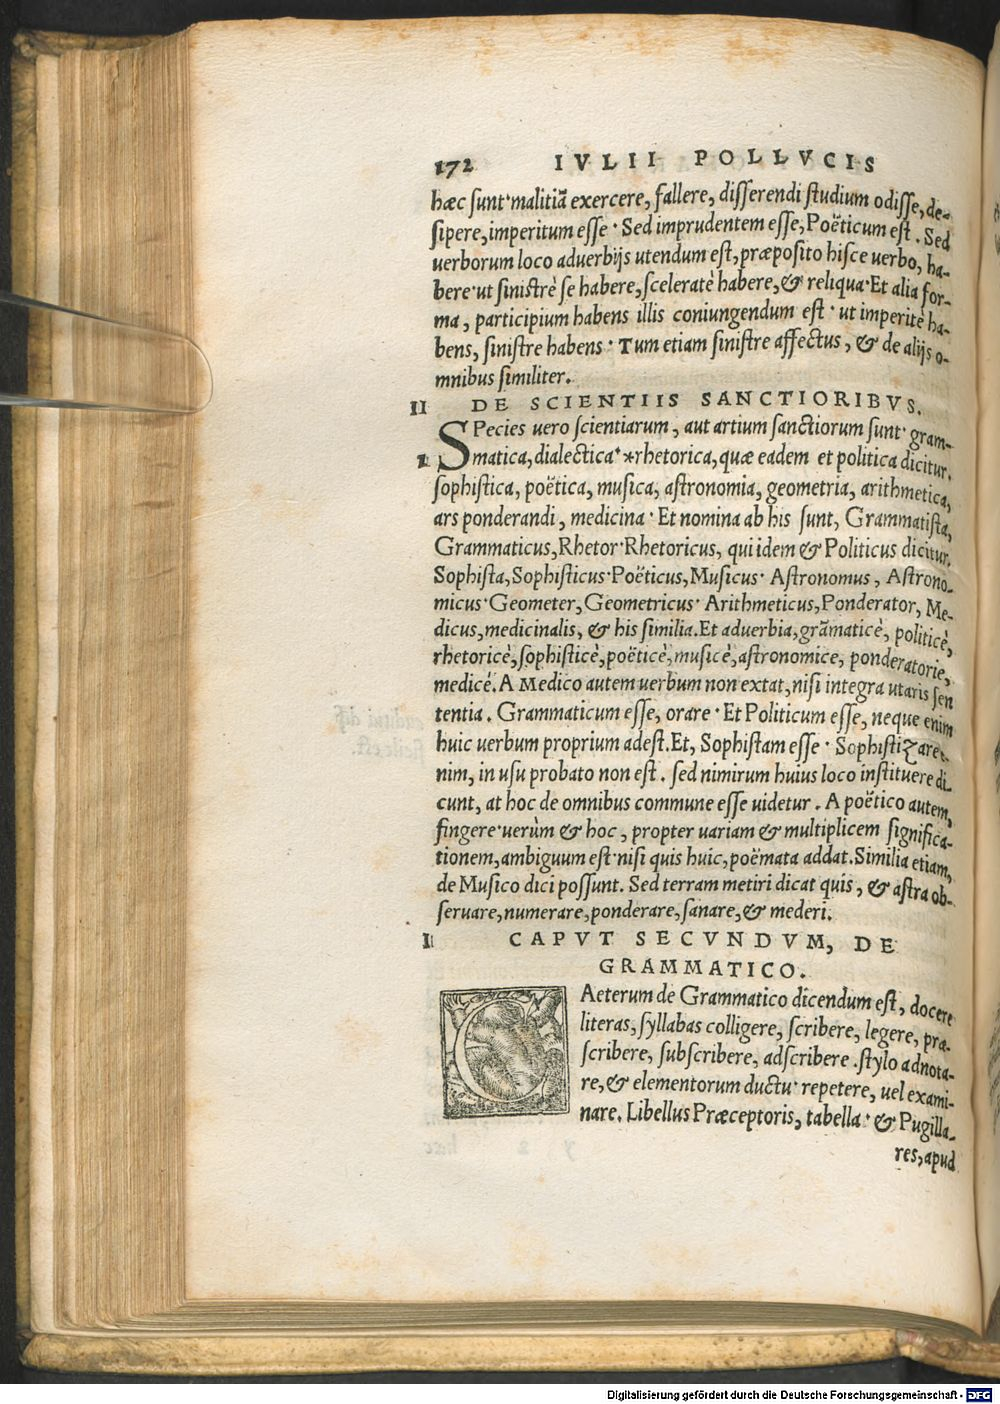 172 IVLII POLLVCIS
hæc sunt·malitiã exercere, fallere, disserendi studium odisse, de-
sipere, imperitum esse · Sed imprudentem esse, Poëticum est. Sed
uerborum loco aduerbijs utendum est, præposito hisce uerbo, ha-
bere·ut sinistrè se habere, sceleratè habere, & reliqua·Et alia for-
ma, participium habens illis coniungendum est · ut imperitè ha-
bens, sinistre habens · Tum etiam sinistre affectus, & de alijs o-
mnibus similiter.
II DE SCIENTIIS SANCTIORIBVS.
SPecies uero scientiarum, aut artium sanctiorum sunt· gram-
1 matica, dialectica· *rhetorica, quæ eadem et politica dicitur.
sophistica, poëtica, musica, astronomia, geometria, arithmetica,
ars ponderandi, medicina · Et nomina ab his sunt, Grammatista,
Grammaticus, Rhetor·Rhetoricus, qui idem & Politicus dicitur.
Sophista, Sophisticus·Poëticus, Musicus· Astronomus, Astrono-
micus·Geometer, Geometricus· Arithmeticus, Ponderator, Me-
dicus, medicinalis, & his similia. Et aduerbia, grãmaticè, politicè,
rhetoricè, sophisticè, poëticè, musicè, astronomice, ponderatorie,
medicè. A Medico autem uerbum non extat, nisi integra utaris sen
tentia. Grammaticum esse, orare · Et Politicum esse, neque enim
huic uerbum proprium adest. Et, Sophistam esse · Sophistizare e-
nim, in usu probato non est. sed nimirum huius loco instituere di-
cunt, at hoc de omnibus commune esse uidetur. A poëtico autem,
fingere·uerùm & hoc, propter uariam & multiplicem significa-
tionem, ambiguum est·nisi quis huic, poëmata addat. Similia etiam,
de Musico dici possunt. Sed terram metiri dicat quis, & astra ob-
seruare, numerare, ponderare, sanare, & mederi.
I CAPVT SECVNDVM, DE
GRAMMATICO.
CAeterum de Grammatico dicendum est, docere
literas, syllabas colligere, scribere, legere, præ-
scribere, subscribere, adscribere. stylo adnota-
re, & elementorum ductu· repetere, uel exami-
nare. Libellus Præceptoris, tabella· & Pugilla-
res, apud
Digitalisierung gefördert durch die Deutsche Forschungsgemeinschaft - DFG